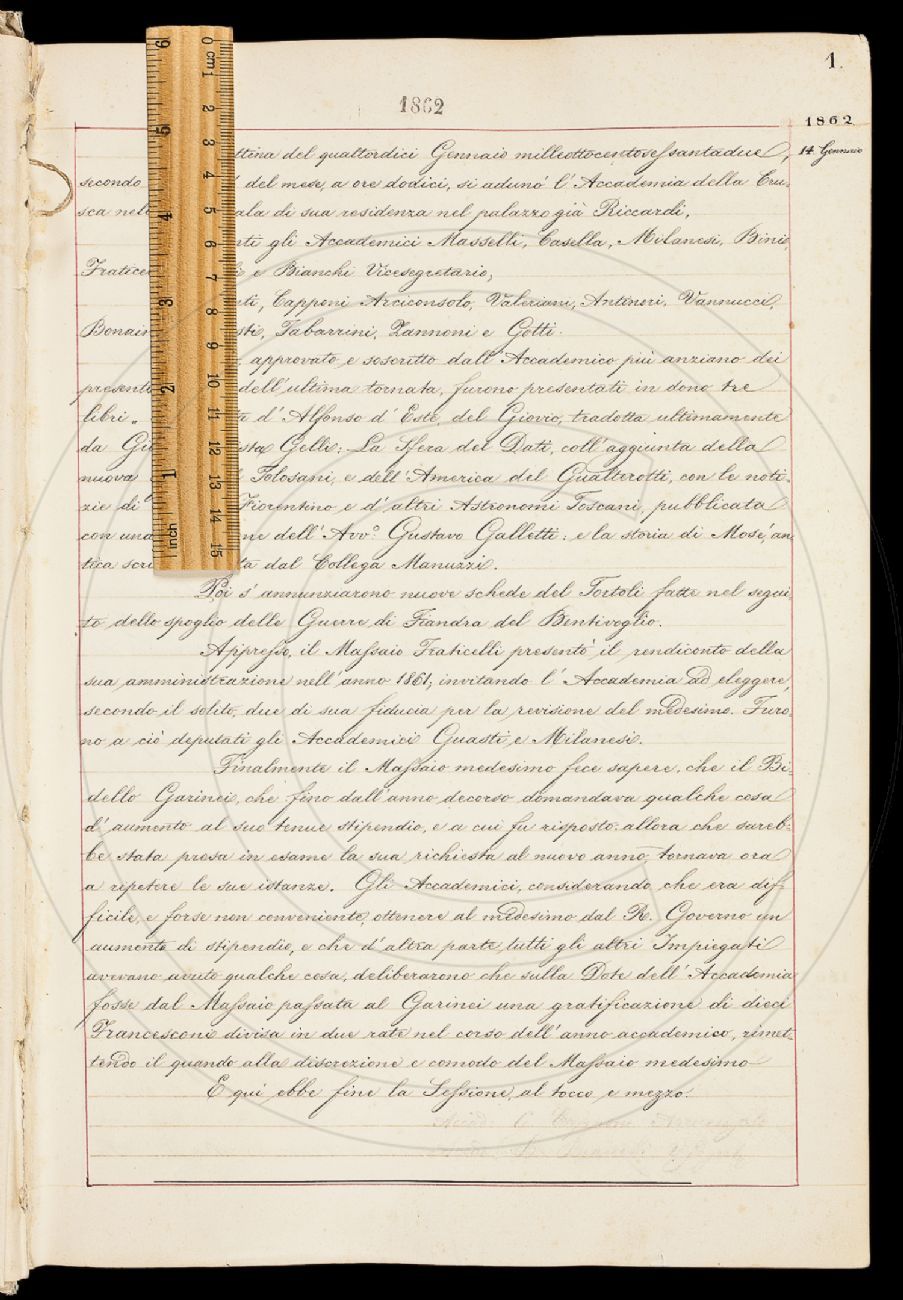 1.
1862
1862
14 Gennaio
ttina del quattordici Gennaio milleottocentosessantadue,
secondo del mese, a ore dodici, si adunò l'Accademia della Cru-
sca nell ala di sua residenza nel palazzo già Riccardi,
nti gli Accademici Masselli, Casella, Milanesi, Bini,
Fratice i e Bianchi Vicesegretario;
nti, Capponi Arciconsolo, Valeriani, Antinori, Vannucci,
Bonain sti, Tabarrini, Zannoni e Gotti.
approvato e soscritto dall'Accademico più anziano dei
presenti dell'ultima tornata, furono presentati in dono tre
libri „ d'Alfonso d'Este, del Giovio, tradotta ultimamente
da Gi sta Gelli; La Sfera del Dati, coll'aggiunta della
nuova Tolosani, e dell'America del Gualterotti, con le noti-
zie di Fiorentino e d'altri Astronomi Toscani, pubblicata
con una ne dell'Avv.º Gustavo Galletti: e la storia di Mosè, an
tica scri ta dal Collega Manuzzi.
Poi s'annunziarono nuove schede del Tortoli fatte nel segui-
to dello spoglio delle Guerre di Fiandra del Bentivoglio.
Appresso, il Massaio Fraticelli presentò il rendiconto della
sua amministrazione nell'anno 1861, invitando l'Accademia ad eleggere,
secondo il solito, due di sua fiducia per la revisione del medesimo. Furo-
no a ciò deputati gli Accademici Guasti e Milanesi.
Finalmente il Massaio medesimo fece sapere, che il Bi-
dello Garinei, che fino dall'anno decorso domandava qualche cosa
d'aumento al suo tenue stipendio, e a cui fu risposto allora che sareb-
be stata presa in esame la sua richiesta al nuovo anno, tornava ora
a repetere le sue istanze. Gli Accademici, considerando che era dif
ficile, e forse non conveniente, ottenere al medesimo dal R. Governo un
aumento di stipendio, e che d'altra parte tutti gli altri Impiegati
avevano avuto qualche cosa, deliberarono che sulla Dote dell'Accademia
fosse dal Massaio passata al Garinei una gratificazione di dieci
Francesconi divisa in due rate nel corso dell'anno accademico, rimet-
tendo il quando alla discrezione e comodo del Massaio medesimo
E qui ebbe fine la Sessione, al tocco e mezzo.
0 cm 1 2 3 4 5 6 7 8 9 10 11 12 13 14 15
6 5 4 3 2 1 inch